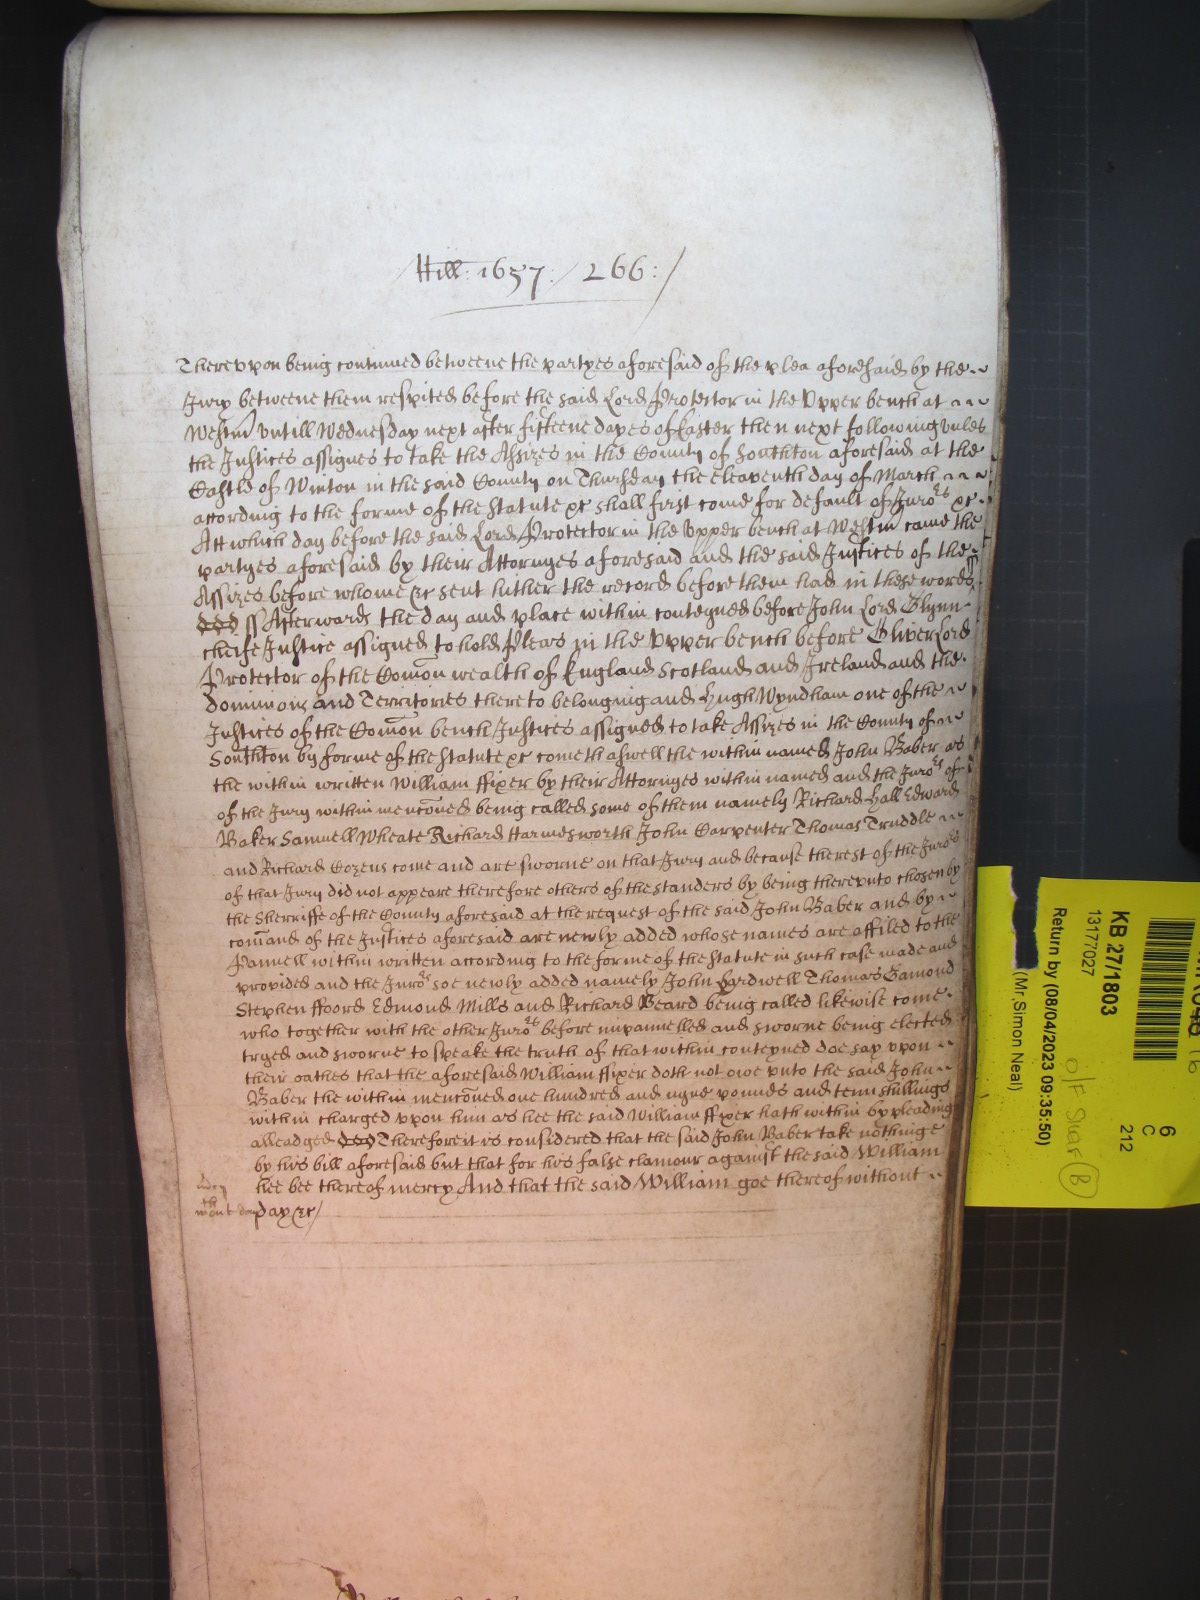 Hill: 1657: / 266: /
Thereupon being continued betweene the partyes aforesaid of the plea aforesaid by the
Jury betweene them respited before the said Lord Protector in the Upper bench at
Westm̄ untill Wednesday next after fifteene dayes of Easter then next following unles
the Justices assigned to take the Assizes in the County of Southton aforesaid at the
Castle of Winton in the said County on Thursday the eleaventh day of March
according to the forme of the statute &c shall first come for default of Juro^rs &c
Att which day before the said Lord Protector in the Upper bench at Westm̄ came the
partyes aforesaid by their Attorneyes aforesaid and the said Justices of the
Assizes before whome &c sent hither the record before them had in these words
ss Afterwards the day and place within conteyned before John Lord Glynn
cheife Justice assigned to hold Pleas in the Upper bench before Oliver Lord
Protector of the Com̄on wealth of England Scotland and Ireland and the
dominions and Territories thereto belonging and Hugh Wyndham one of the
Justices of the Com̄on bench Justices assigned to take Assizes in the County of
Southton by forme of the statute &c cometh aswell the within named John Baber as
the within written William ffixer by their Attorneyes within named and the Juro^rs of
of the Jury within menc̄oned being called some of them namely Richard Hall Edward
Baker Samuell Wheate Richard Harmesworth John Carpenter Thomas Truddle
and Richard Cozens come and are sworne on that Jury and because the rest of the Juro^rs
of that Jury did not appeare therefore others of the standers by being thereunto chosen by
the Sherriffe of the County aforesaid at the request of the said John Baber and by
com̄and of the Justices aforesaid are newly added whose names are affiled to the
Pannell within written according to the forme of the statute in such case made and
provided and the Juro^rs soe newly added namely John Cardwell Thomas Gamond
Stephen ffoord Edmond Mills and Richard Beard being called likewise come
who together with the other Juro^rs before impannelled and sworne being elected
tryed and sworne to speake the truth of that within conteyned doe say upon
their oathes that the aforesaid William ffixer doth not owe unto the said John
Baber the within menc̄oned one hundred and nyne pounds and tenn shillings
within charged upon him as hee the said William ffixer hath within by pleading
alleadged Therefore it is considered that the said John Baber take nothinge
by his bill aforesaid but that for his false clamour against the said William
hee bee thereof mercy And that the said William goe thereof without
day &c /
KB 27/1803
13177027
Return by (08/04/2023 09:35:50)
(Mr, Simon Neal)
6
C
212
O/F Snar B